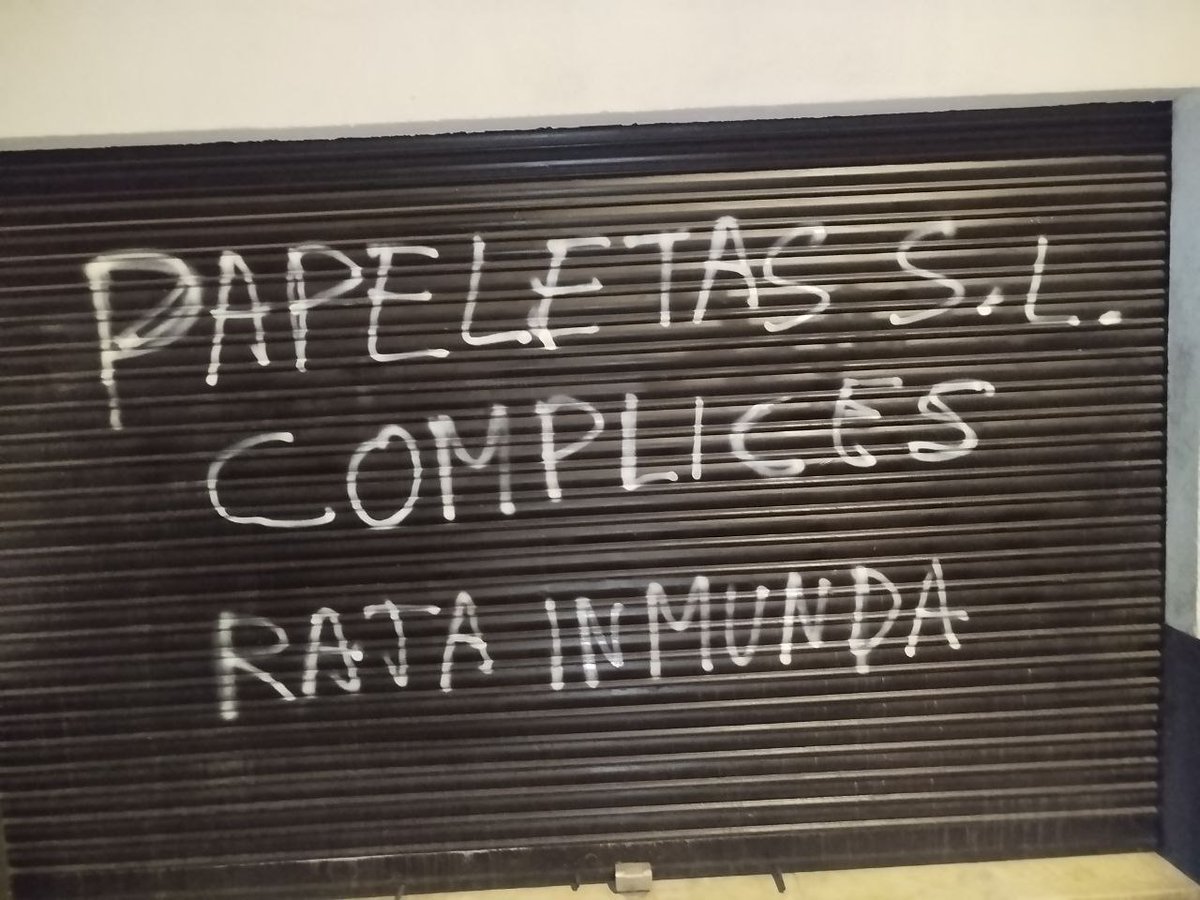 PAPELETAS S.L.
COMPLICES
RATA INMUNDA